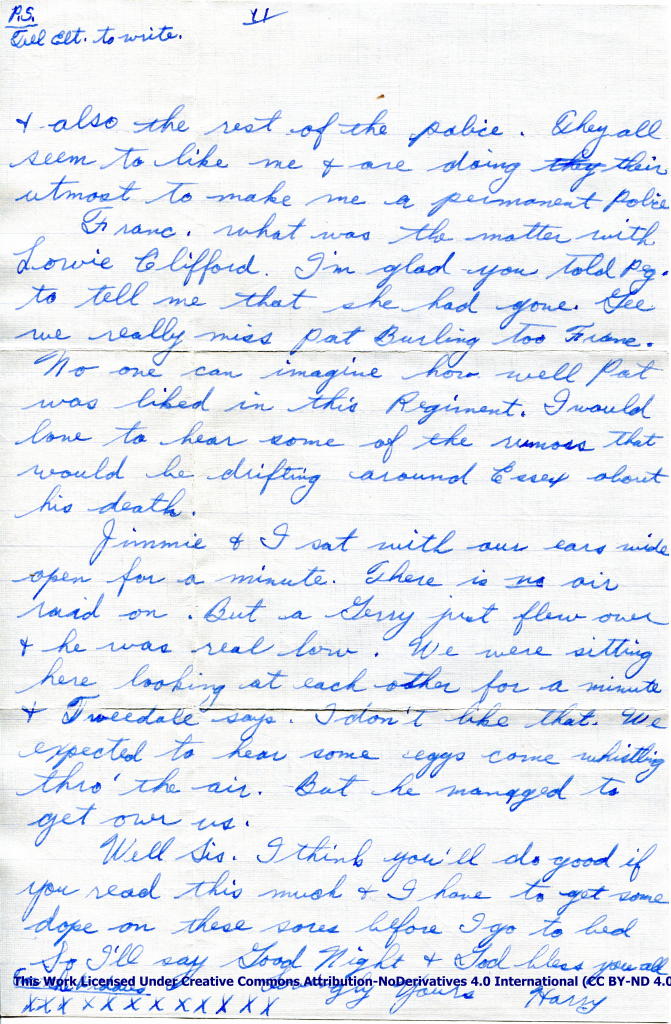 P.S.
11
Tell Elt. to write.
& also the rest of the police. They all
seem to like me & are doing they their
utmost to make me a permanent Police
Franc. what was the matter with
Lowie Clifford. I'm glad you told Peg.
to tell me that she had gone. Gee
we really miss Pat Burling too Franc.
No one can imagine how well Pat
was liked in this Regiment. I would
love to hear some of the rumors that
would be drifting around Essex about
his death.
Jimmie & I sat with our ears wide
open for a minute. There is no air
raid on. But a Gerry just flew over
& he was real low. We were sitting
here looking at each other for a minute
& Tweedale says. I don't like that. We
expected to hear some eggs come whistling
thro' the air. But he managed to
get over us.
Well Sis. I think you'll do good if
you read this much & I have to get some
dope on these sores before I go to bed
So I'll say Good Night & God bless you all
This Work Licensed Under Creative Commons Attribution-NoDerivatives 4.0 International (CC BY-ND 4.0
Lovingly Yours Harry
XXXXXXXXXXX